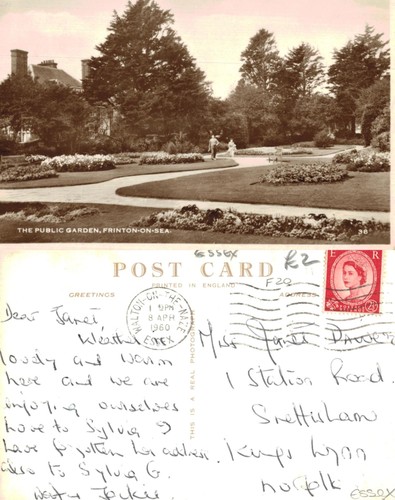 THE PUBLIC GARDEN, FRINTON-ON-SEA
36
ESSEX
£2
POST CARD
PRINTED IN ENGLAND
F20
GREETINGS
ADDRESS
WALTON-ON-THE-NAZE
1 PM
8 APR
1960
ESSEX
E R
THIS IS A REAL PHOTOGRAPH
Dear Janet,
Weather
lovely and warm
here and we are
enjoying ourselves
love to Sylvia I
have forgotten her address
also to Sylvia G.
Jackie
Miss Janet
1 Station Road.
Snettisham
Kings Lynn
Norfolk
ESSEX